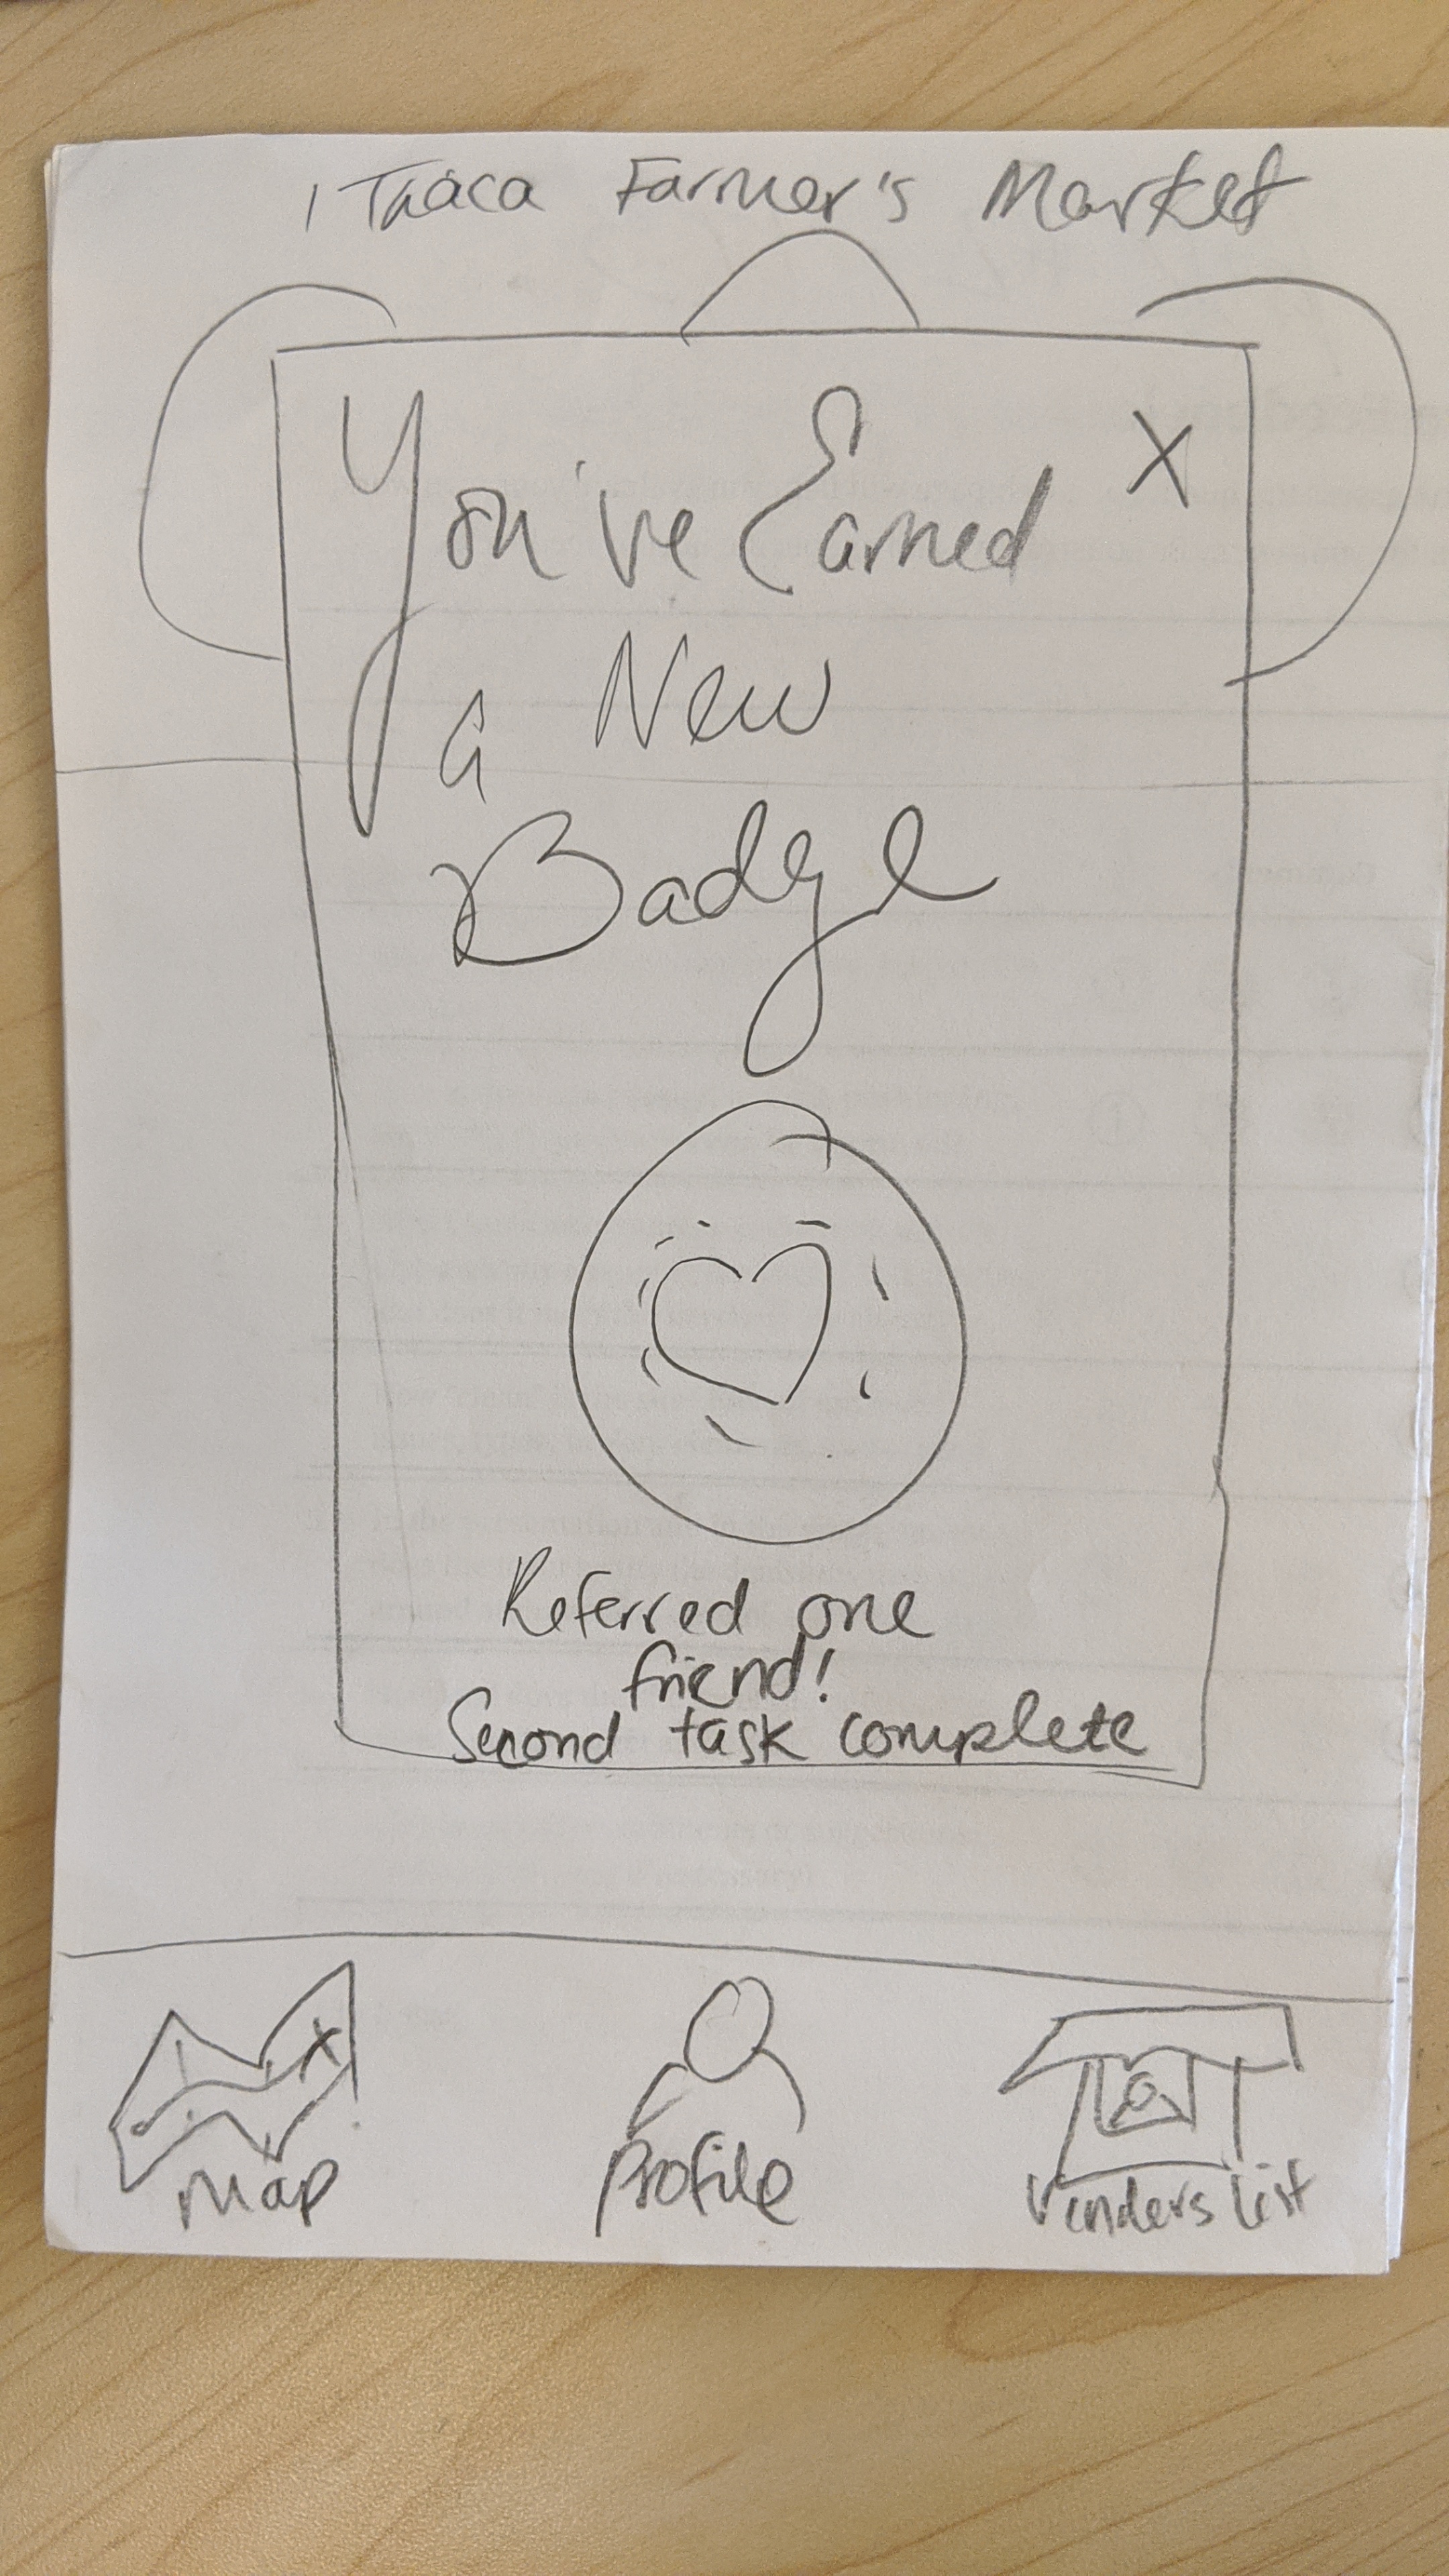 Ithaca Farmer's Market
You've Earned X
a New
Badge
Referred one
friend!
Second task complete
Map
Profile
Venders List